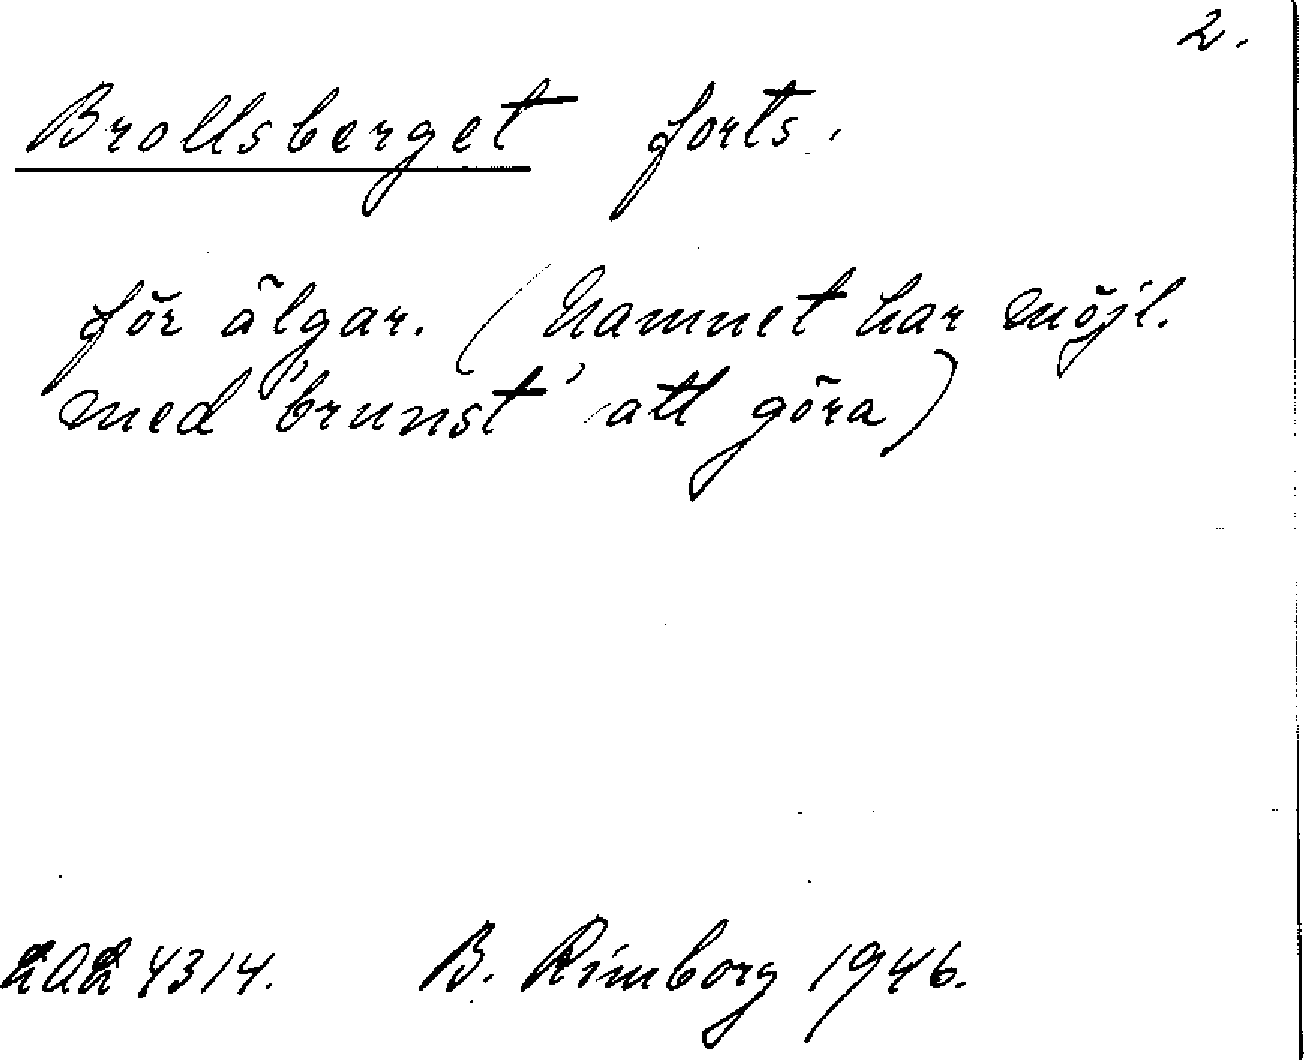 2.
Brollsberget forts.
för älgar. (Namnet har möjl.
med 'brunst' att göra)
LAL 4314. B. Rimborg 1946.